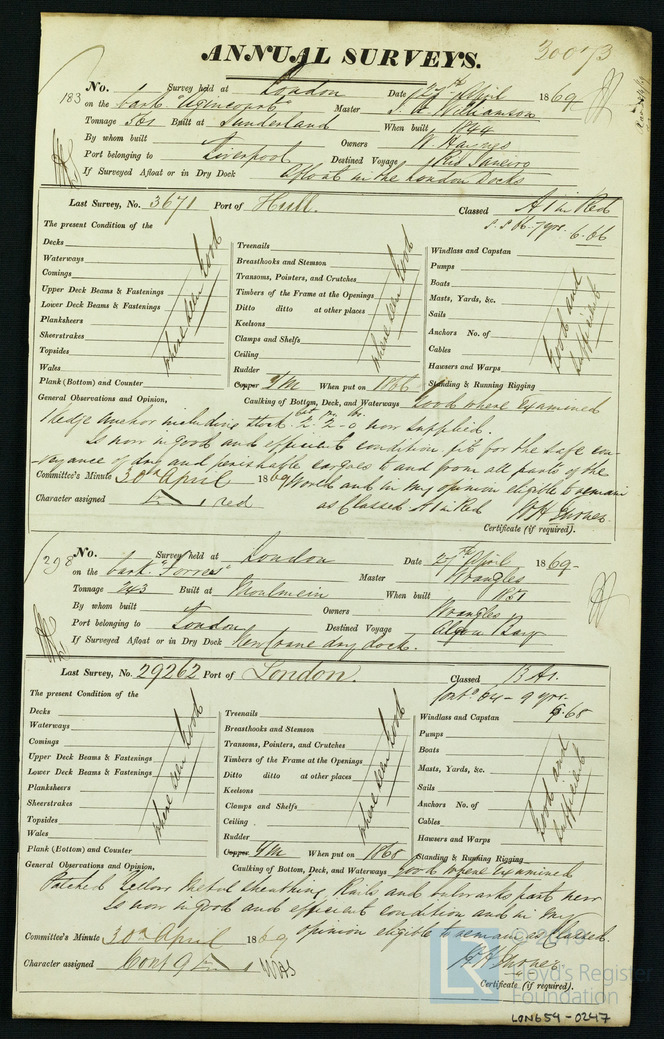 ANNUAL SURVEYS.
30073
183 No. Survey held at London Date 29th April 1869
on the bark "Agincourt" Master Williamson
Tonnage Built at Sunderland When built 1844
By whom built Owners
Port belonging to Liverpool Destined Voyage Rio Janeiro
If Surveyed Afloat or in Dry Dock Afloat in the London Docks
Last Survey, No. 3671 Port of Hull. Classed A 1 in Red
7 yrs. 6.66
The present Condition of the
Decks
Waterways
Comings
Upper Deck Beams & Fastenings
Lower Deck Beams & Fastenings
Planksheers
Sheerstrakes
Topsides
Wales
Plank (Bottom) and Counter
where seen Good
Treenails
Breasthooks and Stemson
Transoms, Pointers, and Crutches
Timbers of the Frame at the Openings
Ditto ditto at other places
Keelsons
Clamps and Shelfs
Ceiling
Rudder
Copper Y/M When put on 1866
where seen Good
Windlass and Capstan
Pumps
Boats
Masts, Yards, &c.
Sails
Anchors No. of
Cables
Hawsers and Warps
Standing & Running Rigging
Good and Sufficient
General Observations and Opinion, Caulking of Bottom, Deck, and Waterways Good where Examined
1 Kedge anchor including stock 2-2-0 now supplied.
Is now in good and efficient condition fit for the safe con-
-veyance of dry and perishable cargoes to and from all parts of the
Committee's Minute 30th April 1869 World and in my opinion eligible to remain
Character assigned 1 red as Classed A 1 in Red W H Turner
Certificate (if required).
298 No. Survey held at London Date 29th April 1869
on the bark "Torres" Master Wrangles
Tonnage 243 Built at Moulmein When built 1851
By whom built Owners Wrangles
Port belonging to London Destined Voyage Algoa Bay
If Surveyed Afloat or in Dry Dock dry dock.
Last Survey, No. 29262 Port of London. Classed
Cont. 64 - 9 yrs.
6.68
The present Condition of the
Decks
Waterways
Comings
Upper Deck Beams & Fastenings
Lower Deck Beams & Fastenings
Planksheers
Sheerstrakes
Topsides
Wales
Plank (Bottom) and Counter
where seen Good
Treenails
Breasthooks and Stemson
Transoms, Pointers, and Crutches
Timbers of the Frame at the Openings
Ditto ditto at other places
Keelsons
Clamps and Shelfs
Ceiling
Rudder
Copper Y/M When put on 1868
where seen Good
Windlass and Capstan
Pumps
Boats
Masts, Yards, &c.
Sails
Anchors No. of
Cables
Hawsers and Warps
Standing & Running Rigging
Good and Sufficient
General Observations and Opinion, Caulking of Bottom, Deck, and Waterways Good where Examined
Patched Yellow Metal sheathing, Rails and bulwarks part new
Is now in good and efficient condition and in my
Committee's Minute 30th April 1869 opinion eligible to remain as Classed.
Character assigned Cont 9 W H Turner
Certificate (if required).
LR © 2019
Lloyd's Register
Foundation
LON654-0247